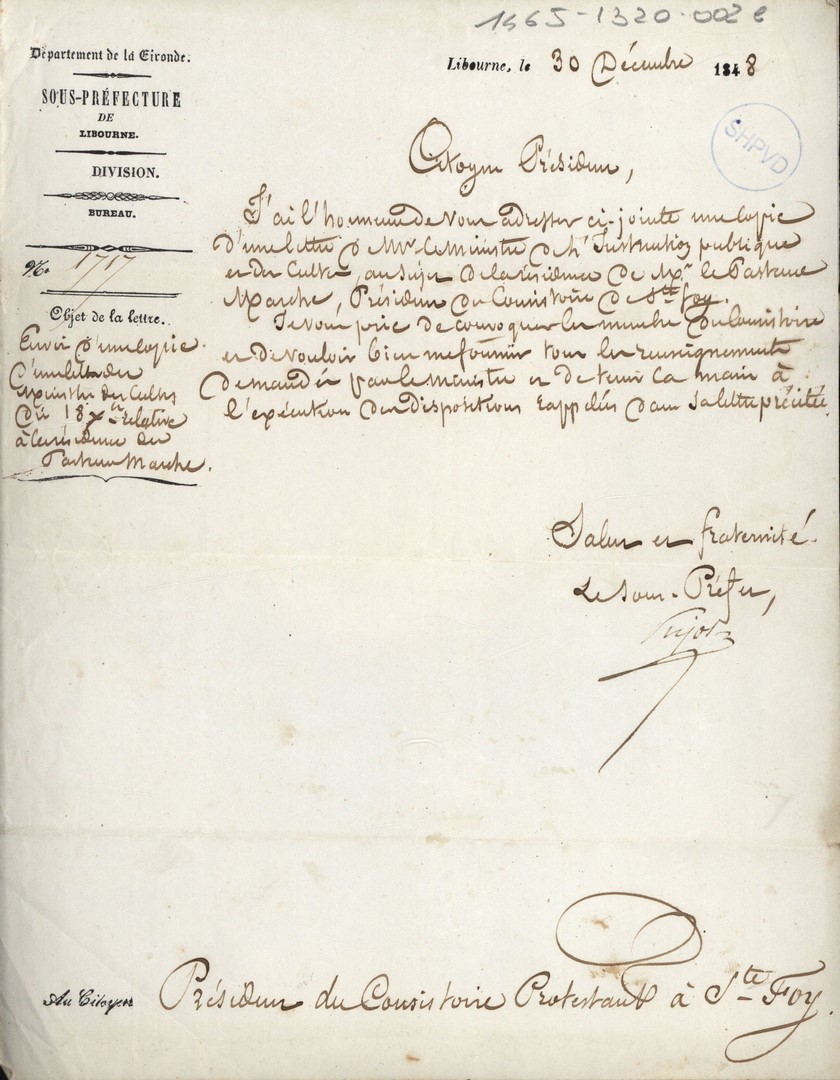 1465-1320-002 e
Département de la Gironde.
SOUS-PRÉFECTURE
DE
LIBOURNE.
DIVISION.
BUREAU.
No. 1717
Objet de la lettre.
Envoi d'une copie
d'une lettre du
Ministre des Cultes
du 18 Xbre relative
à la résidence du
Pasteur Marche.
Libourne, le 30 Décembre 1848
SHPVD
Citoyen Président,
J'ai l'honneur de vous adresser ci-jointe une copie
d'une lettre de Mr. le Ministre de l'Instruction publique
et des Cultes, au sujet de la résidence de Mr. le Pasteur
Marche, Président du Consistoire de Ste foy.
Je vous prie de convoquer les membres du Consistoire
et de vouloir bien me fournir tous les renseignements
demandés par le Ministre et de tenir la main à
l'exécution des dispositions rappelées dans sa lettre précitée.
Salut et fraternité.
Le Sous-Préfet,
Pujos
Au Citoyen Président du Consistoire Protestant à Ste Foy.